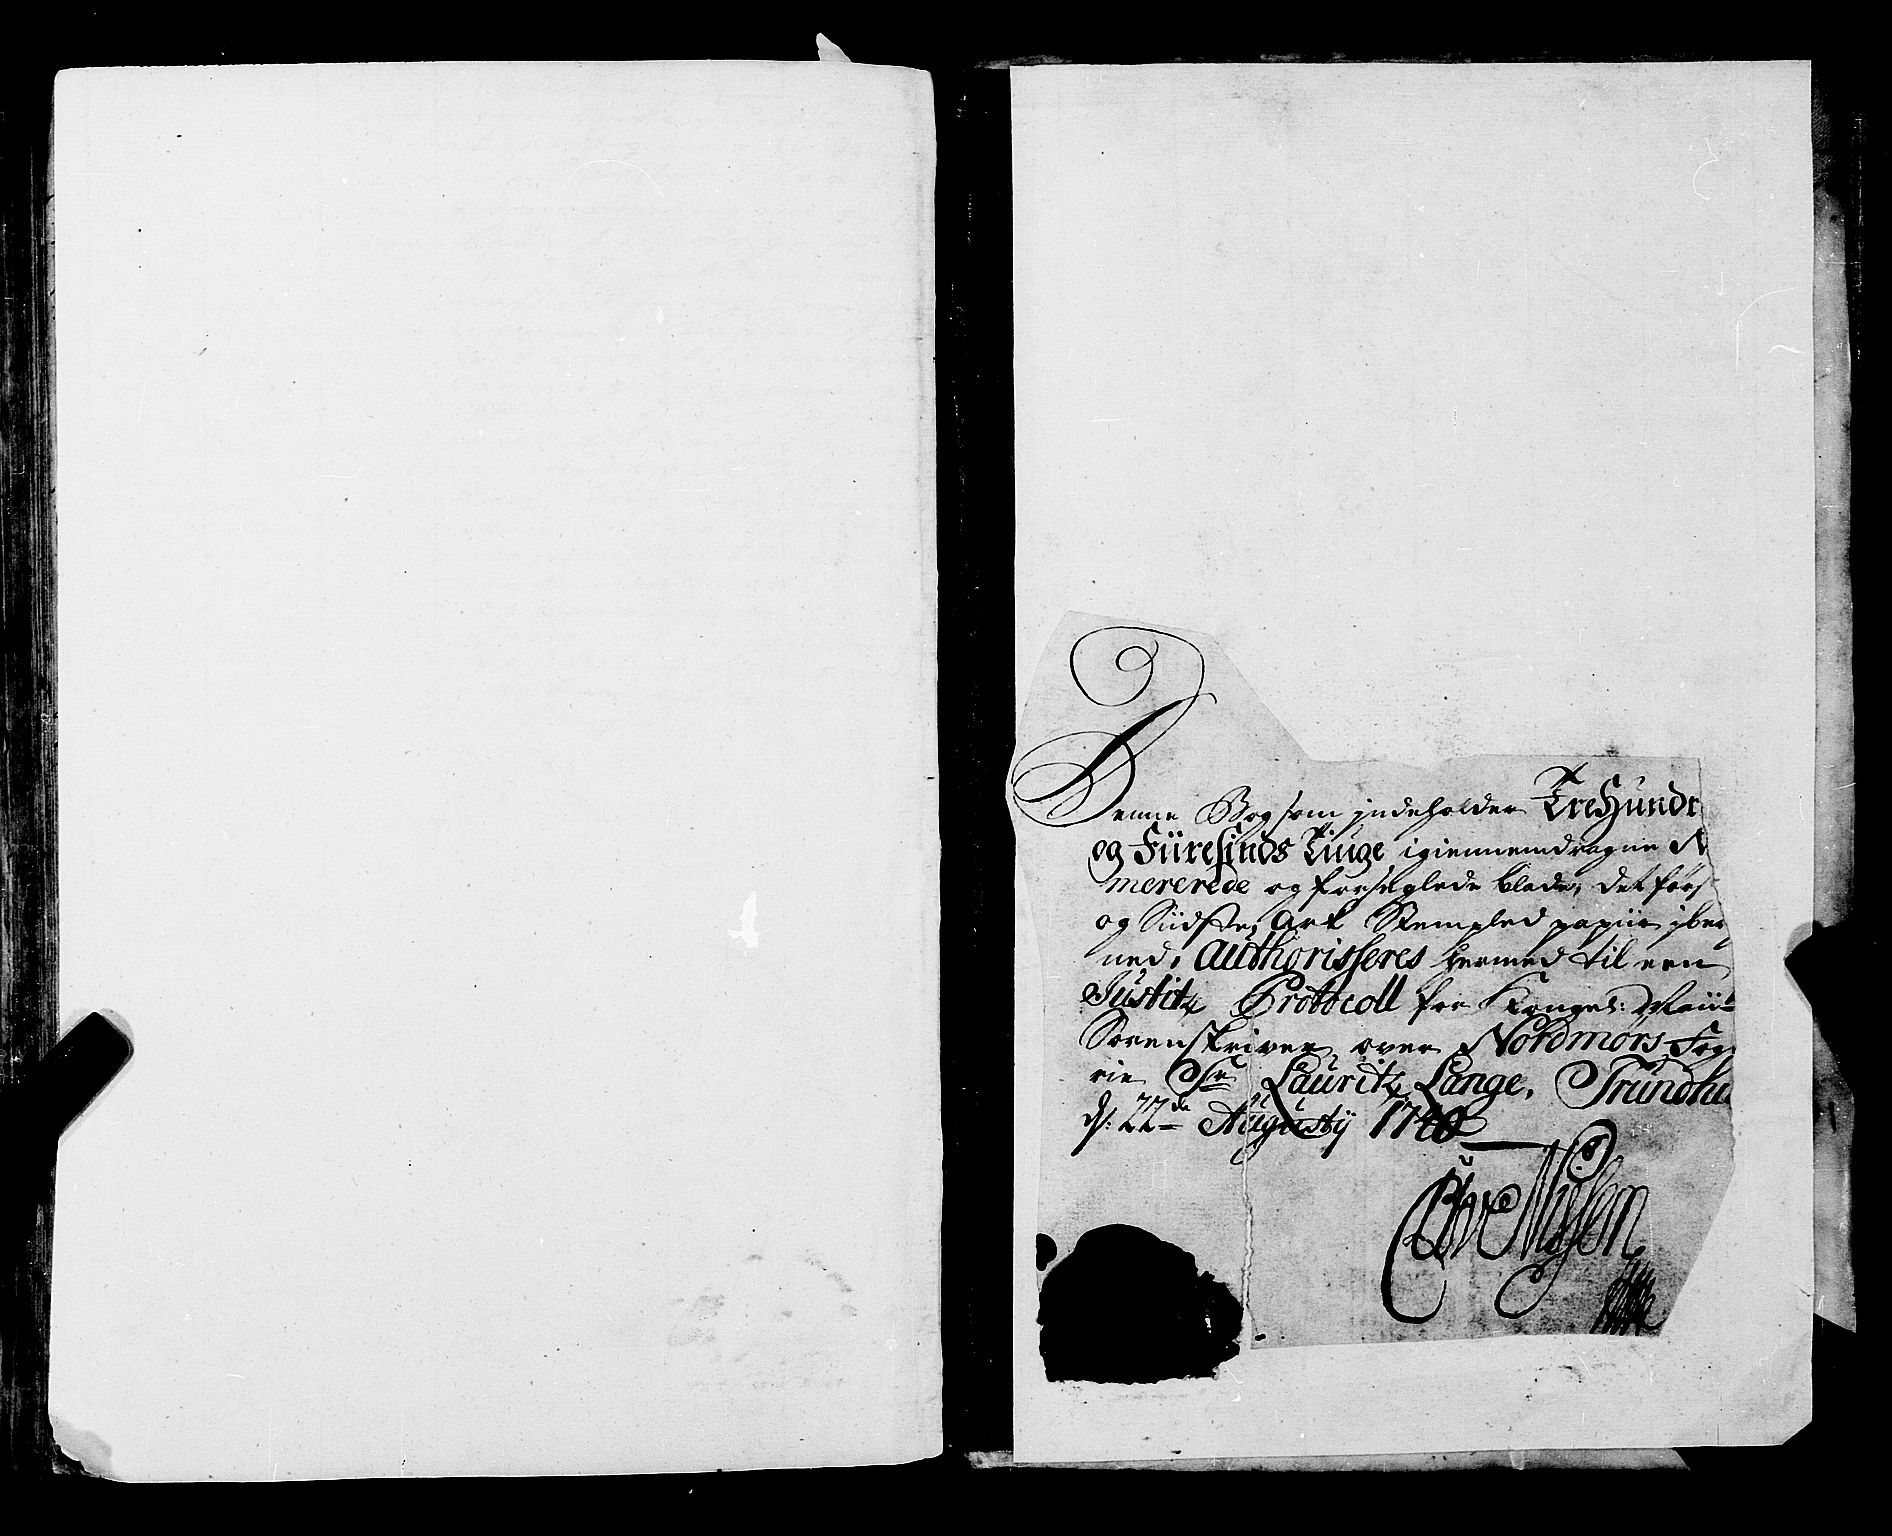 Denne Bog som jndeholder Tre Hundr
og Fiiresinds Tiuge igiennemdragne N
mererede og forseglede blade, det förs
og Siidste, Ark Stempled papiir jbereg
ned, authorisseres hermed til een
Justitz Prottocoll for Kongel:
Sorenskriver over Nordmörs Fog
rie Sr Lauritz Lange, Trundhi
d: 22de Augusty 1740